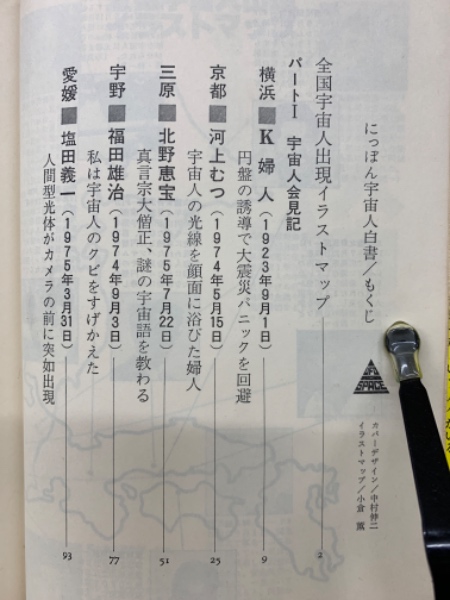 にっぽん宇宙人白書／もくじ
UFO
SPACE
カバーデザイン／中村伸二
イラストマップ／小倉薫
全国宇宙人出現イラストマップ 2
パートI 宇宙人会見記
横浜■K婦人（1923年9月1日） 9
円盤の誘導で大震災パニックを回避
京都■河上むつ（1974年5月15日） 25
宇宙人の光線を顔面に浴びた婦人
三原■北野恵宝（1975年7月22日） 51
真言宗大僧正、謎の宇宙語を教わる
宇野■福田雄治（1974年9月3日） 77
私は宇宙人のクビをすげかえた
愛媛■塩田義一（1975年3月31日） 93
人間型光体がカメラの前に突如出現